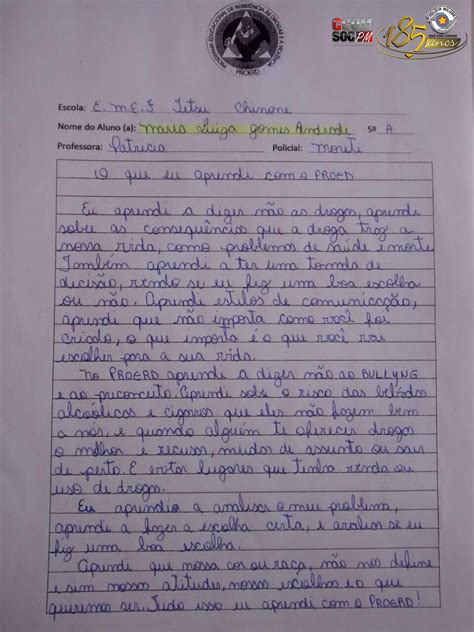 CCOM
SOC PM
185 anos
PROGRAMA EDUCACIONAL DE RESISTÊNCIA ÀS DROGAS E À VIOLÊNCIA
PROERD
Escola: E.M.E.F Tetsu Chinone
Nome do Aluno (a): Maria Luiza Gomes Andrade 5º A
Professora: Patricia Policial: Moreti
O que eu aprendi com o PROED
Eu aprendi a dizer não as drogas, aprendi
sobre as consequências que a droga traz a
nossa vida, como problemas de saúde e morte.
Também aprendi a ter uma tomada de
decisão, vendo se eu fiz uma boa escolha
ou não. Aprendi estilos de comunicação,
aprendi que não importa como você foi
criado, o que importa é o que você vai
escolher para a sua vida.
No PROERD aprendi a dizer não ao BULLYNG
e ao preconceito. Aprendi sobre o risco das bebidas
alcoólicas e cigarros que eles não fazem bem
a nós, e quando alguém te oferecer drogas
o melhor e recusar, mudar de assunto ou sair
de perto. E evitar lugares que tenha venda ou
uso de drogas.
Eu aprendi a analisar o meu problema,
aprendi a fazer a escolha certa, e analisar se eu
fiz uma boa escolha.
Aprendi que nossa cor ou raça, não nos define
e sim nossas atitudes, nossas escolhas e o que
queremos ser. Tudo isso eu aprendi com o PROERD!